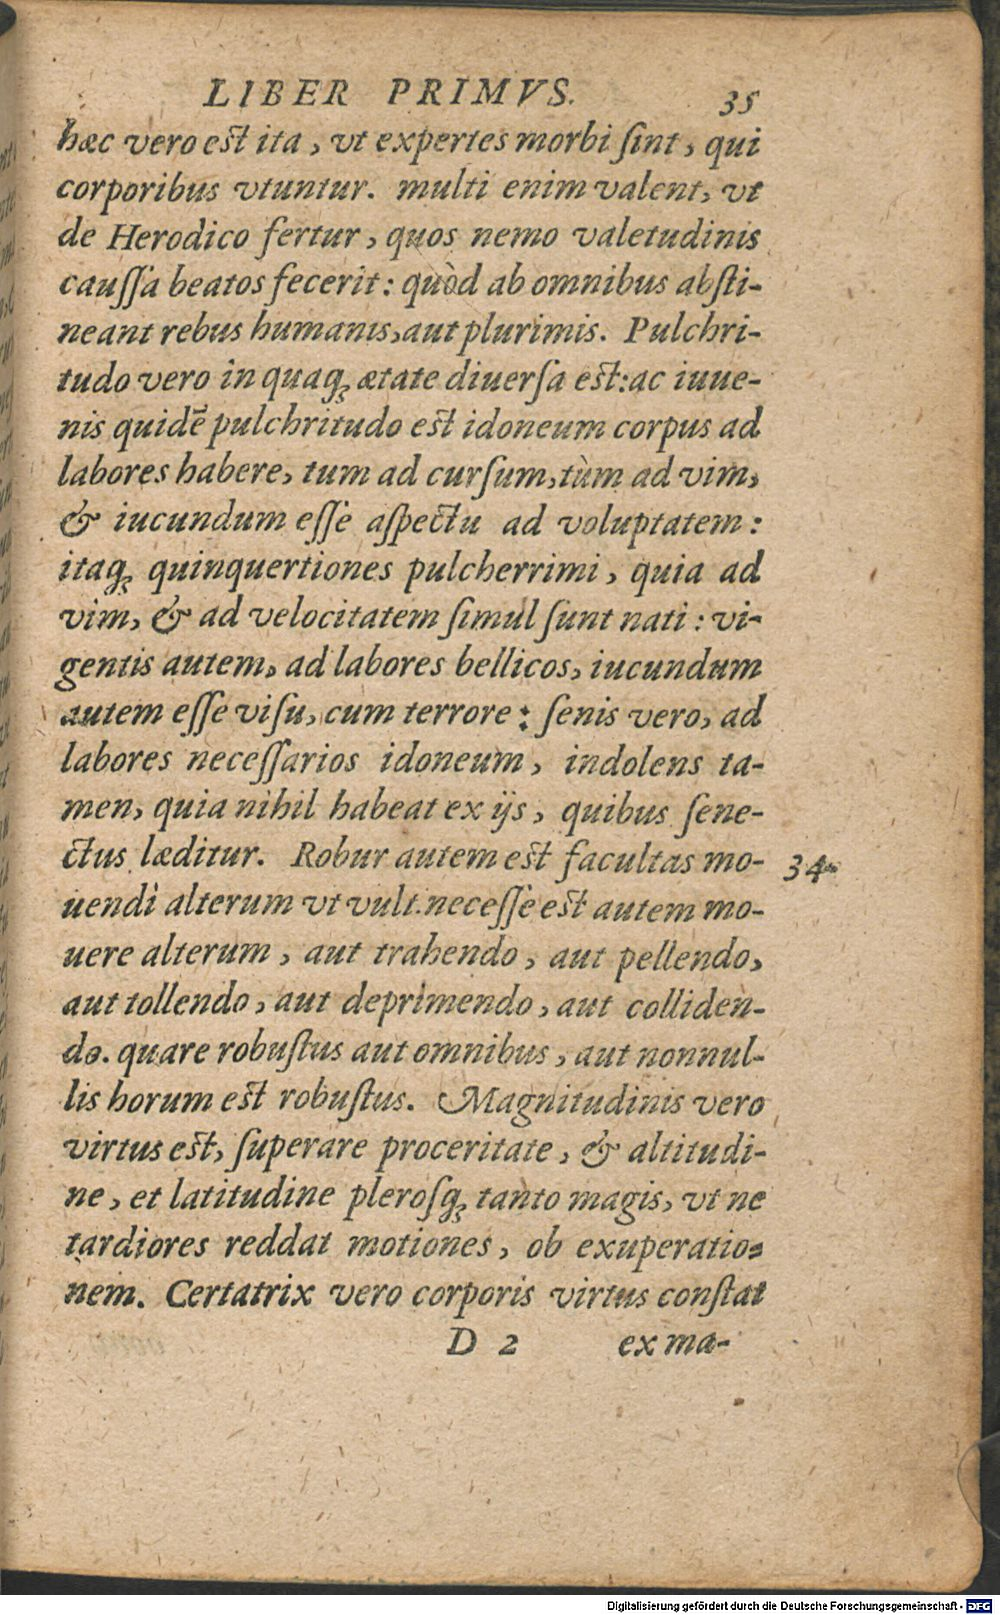 LIBER PRIMVS. 35
hæc vero est ita, vt expertes morbi ſint, qui
corporibus vtuntur. multi enim valent, vt
de Herodico fertur, quos nemo valetudinis
cauſſa beatos fecerit: quòd ab omnibus abſti-
neant rebus humanis, aut plurimis. Pulchri-
tudo vero in quaq; ætate diuerſa est: ac iuue-
nis quidē pulchritudo est idoneum corpus ad
labores habere, tum ad curſum, tùm ad vim,
& iucundum eſſe aſpectu ad voluptatem:
itaq; quinquertiones pulcherrimi, quia ad
vim, & ad velocitatem ſimul ſunt nati: vi-
gentis autem, ad labores bellicos, iucundum
autem eſſe viſu, cum terrore: ſenis vero, ad
labores neceſſarios idoneum, indolens ta-
men, quia nihil habeat ex ijs, quibus ſene-
ctus læditur. Robur autem est facultas mo- 34
uendi alterum vt vult. neceſſe est autem mo-
uere alterum, aut trahendo, aut pellendo,
aut tollendo, aut deprimendo, aut colliden-
do. quare robuſtus aut omnibus, aut nonnul-
lis horum est robuſtus. Magnitudinis vero
virtus est, ſuperare proceritate, & altitudi-
ne, et latitudine pleroſq; tanto magis, vt ne
tardiores reddat motiones, ob exuperatio-
nem. Certatrix vero corporis virtus conſtat
D 2 ex ma-
Digitalisierung gefördert durch die Deutsche Forschungsgemeinschaft - DFG